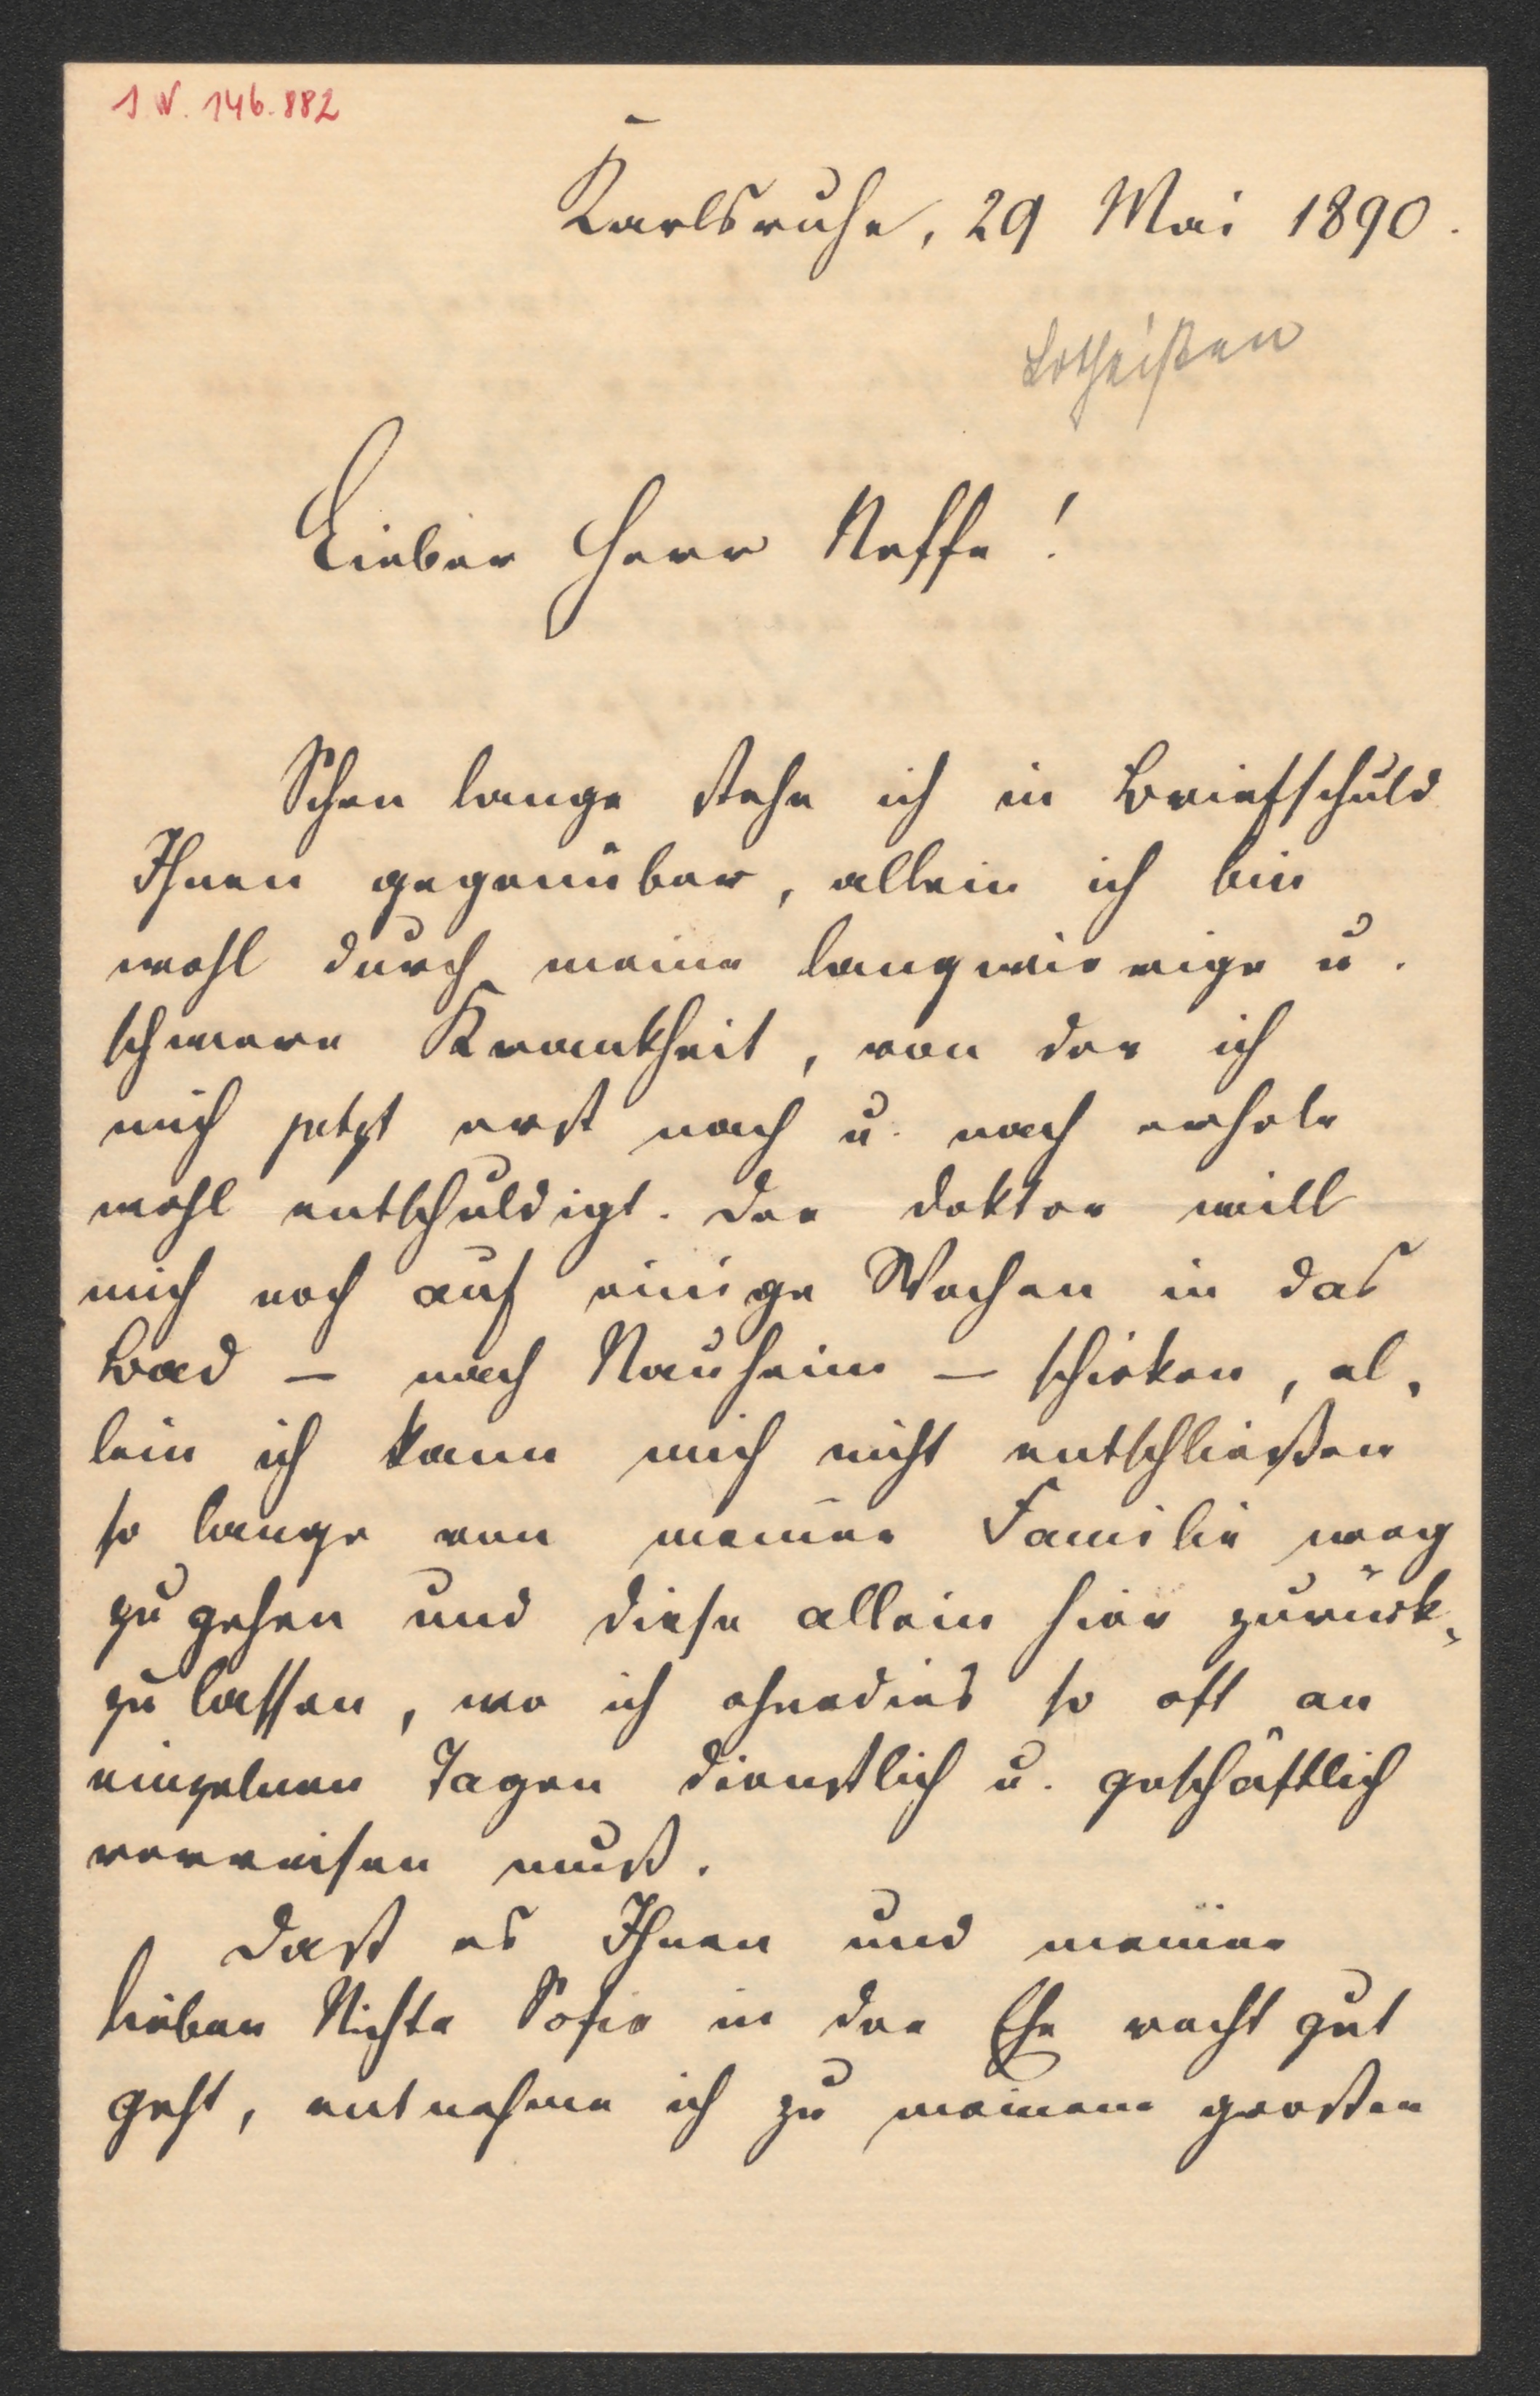 I.N. 146.882
Karlsruhe, 29 Mai 1890.
Lotheißen
Lieber Herr Neffe!
Schon lange stehe ich in Briefschuld
Ihnen gegenüber, allein ich bin
wohl durch meine langwierige u.
schwere Krankheit, von der ich
mich jetzt erst nach u. nach erhole
wohl entschuldigt. Der Doktor will
mich noch auf einige Wochen in das
Bad – nach Nauheim – schicken, al-
lein ich kann mich nicht entschließen
so lange von meiner Familie weg
zu gehen und diese allein hier zurück-
zu lassen, wo ich ohnedies so oft an
einzelnen Tagen dienstlich u. geschäftlich
verreisen muß.
Daß es Ihnen und meiner
lieben Nichte Sofie in der Ehe recht gut
geht, entnehme ich zu meinem großen